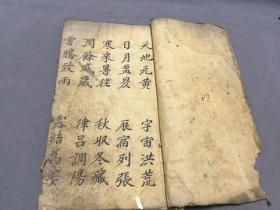 天地元黄 宇宙洪荒
日月盈昃 辰宿列張
寒來暑徃 秋收冬藏
潤餘成歲 律吕調陽
雲騰致雨 露結為霜